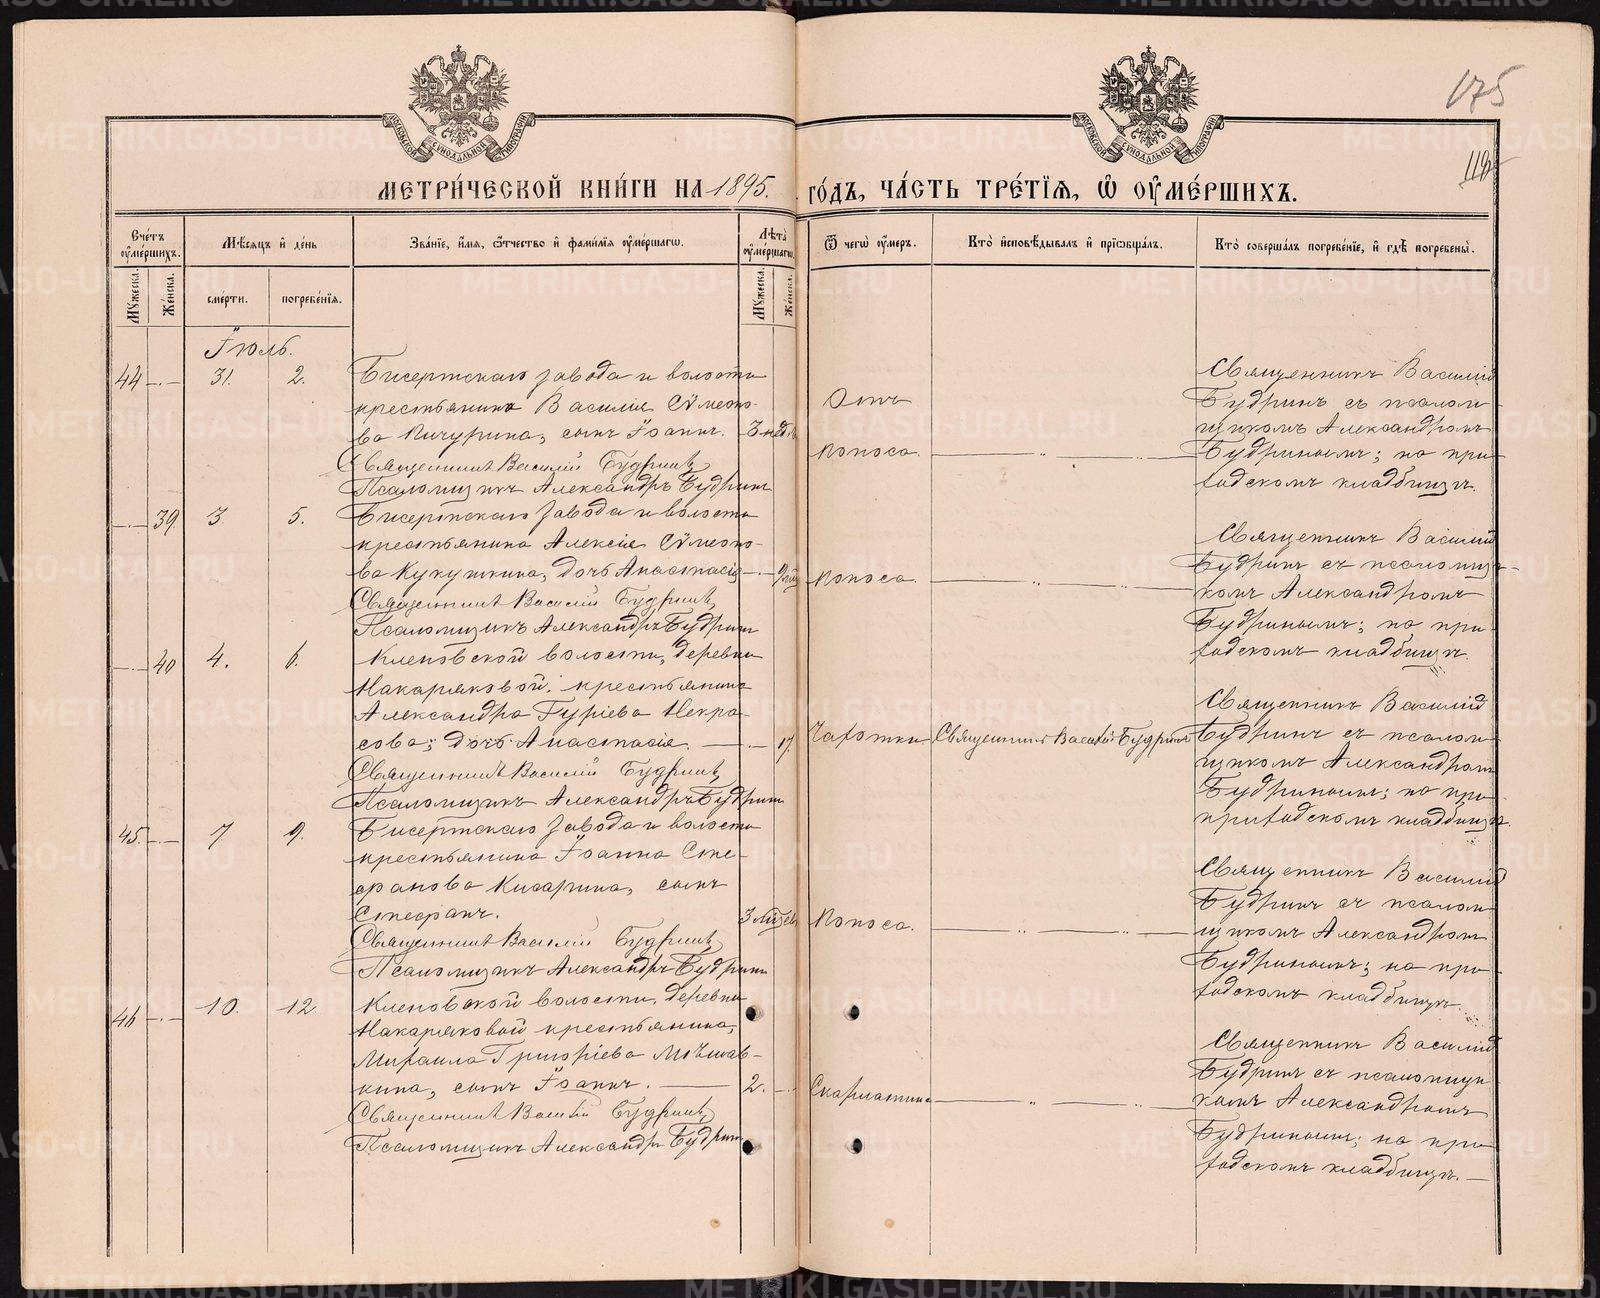 175
118
МОСКОВСКОЙ СУНОДАЛЬНОЙ ТИПОГРАФІИ
МОСКОВСКОЙ СУНОДАЛЬНОЙ ТИПОГРАФІИ
МЕТРИ́ЧЕСКОЙ КНИ́ГИ НА 1895. ГО́ДЪ, ЧА́СТЬ ТРЕ́ТІЯ, Ѡ ОУМЕ́РШИХЪ.
Сче́тъ оумершихъ.
Мѣсяцъ и де́нь
Зва́ніе, и́мя, ѻтчество и фами́лія оуме́ршагѡ.
Лѣта̀ оуме́ршагѡ.
Ѿ чегѡ̀ оу́меръ.
Кто̀ исповѣ́дывалъ и пріѡбща́лъ.
Кто̀ соверша́лъ погребе́ніе, и гдѣ̀ погребены̀.
Мꙋ́жеска.
Же́нска.
сме́рти.
погребе́нія.
Мꙋ́жеска.
Же́нска.
Іюль.
44 -.- 31. 2. Бисертскаго завода и волости
крестьянина Василія Сѵмеоно-
ва Кичурина, сынъ Іоаннъ. 3 недѣль
Священникъ Василій Будринъ
Псаломщикъ Александръ Будринъ
Поноса.
Священникъ Василій
Будринъ съ псалом-
щикомъ Александромъ
Будринымъ; на при-
ходскомъ кладбищѣ.
-.- 39 3. 5. Бисертскаго завода и волости
крестьянина Алексія Сѵмеоно-
ва Кукушкина, дочь Анастасія
Священникъ Василій Будринъ
Псаломщикъ Александръ Будринъ
Поноса.
Священникъ Василій
Будринъ съ псаломщи-
комъ Александромъ
Будринымъ; на при-
ходскомъ кладбищѣ.
-.- 40 4. 6. Кленовской волости, деревни
Накаряковой, крестьянина
Александра Гуріева Некра-
сова, дочь Анастасія. -.- 17.
Священникъ Василій Будринъ
Псаломщикъ Александръ Будринъ
Чахотки
Священникъ Василій Будринъ
Священникъ Василій
Будринъ съ псалом-
щикомъ Александромъ
Будринымъ; на при-
приходскомъ кладбищѣ.
45. -.- 7 9. Бисертскаго завода и волости
крестьянина Іоанна Сте-
фанова Кисарина, сынъ
Стефанъ. 3 мѣсяц.
Священникъ Василій Будринъ
Псаломщикъ Александръ Будринъ
Поноса.
Священникъ Василій
Будринъ съ псалом-
щикомъ Александромъ
Будринымъ; на при-
ходскомъ кладбищѣ.
46 -.- 10. 12 Кленовской волости, деревни
Накаряковой крестьянина,
Михаила Григоріева Мѣшав-
кина, сынъ Іоаннъ. 2. -.-
Священникъ Василій Будринъ
Псаломщикъ Александръ Будринъ
Скарлатина
Священникъ Василій
Будринъ съ псаломщи
комъ Александромъ
Будринымъ; на при
ходскомъ кладбищѣ.